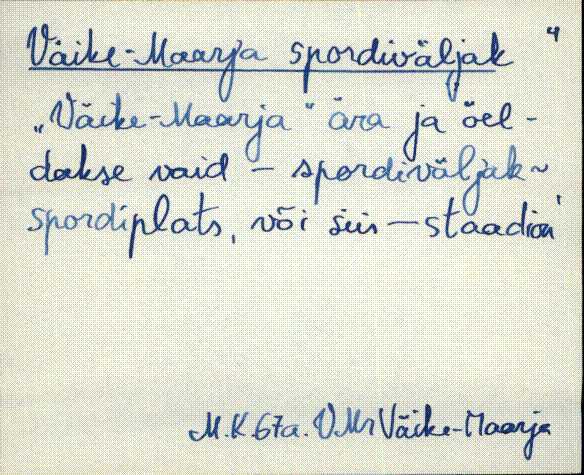 Väike-Maarja spordiväljak 4
„Väike-Maarja" ära ja öel-
dakse vaid – spordiväljak ~
spordiplats, või siis – staadion
M.K. 67a. VMr Väike-Maarja